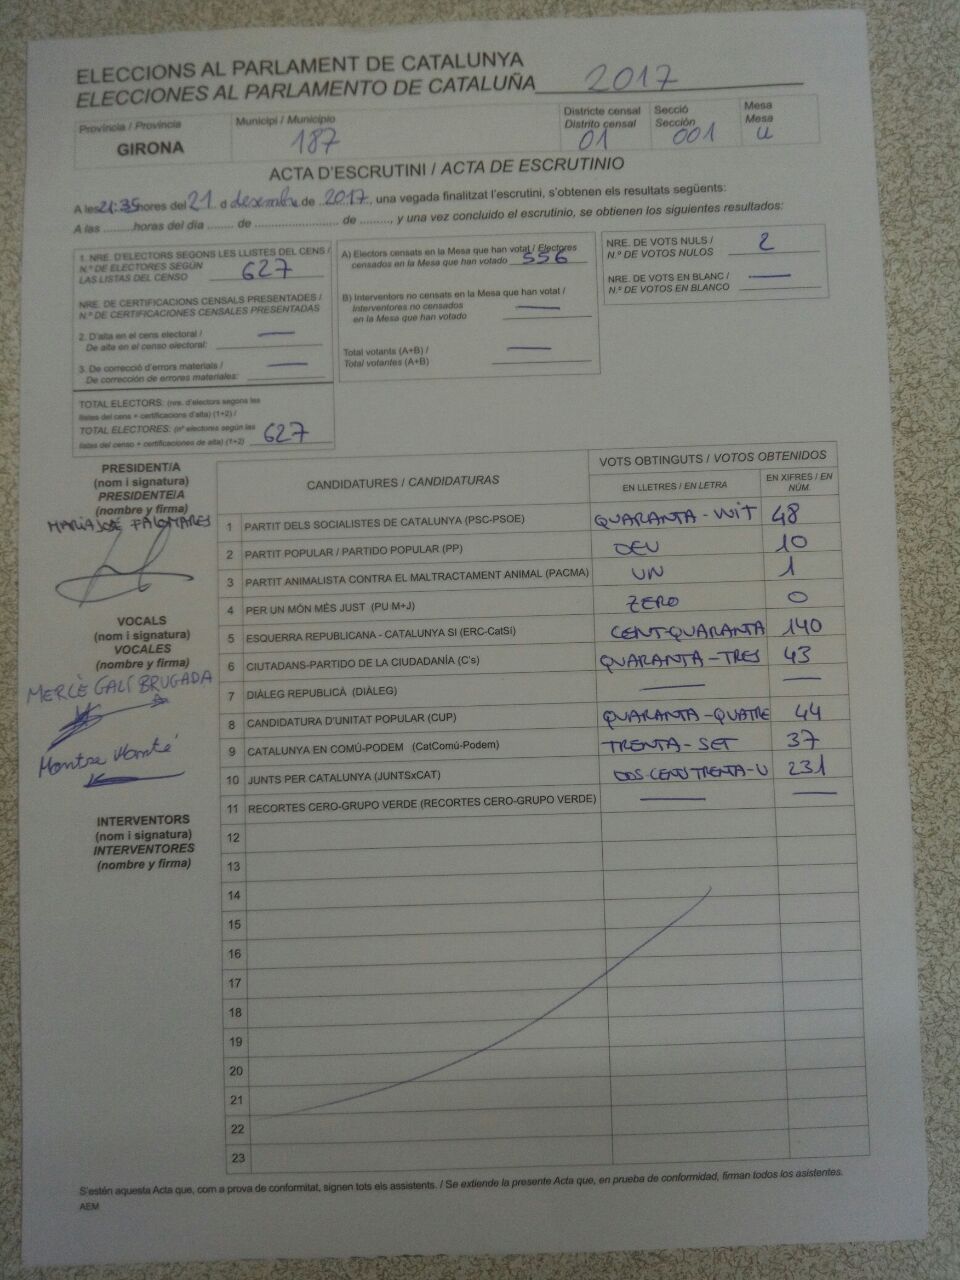 ELECCIONS AL PARLAMENT DE CATALUNYA
ELECCIONES AL PARLAMENTO DE CATALUÑA 2017
Província / Provincia
GIRONA
Municipi / Municipio
187
Districte censal
Distrito censal
01
Secció
Sección
001
Mesa
Mesa
U
ACTA D'ESCRUTINI / ACTA DE ESCRUTINIO
A les 21:35 hores del 21 d desembre de 2017, una vegada finalitzat l'escrutini, s'obtenen els resultats següents:
A las .........horas del día ........ de ......................... de .........., y una vez concluido el escrutinio, se obtienen los siguientes resultados:
1. NRE. D'ELECTORS SEGONS LES LLISTES DEL CENS /
N.º DE ELECTORES SEGÚN
LAS LISTAS DEL CENSO 627
NRE. DE CERTIFICACIONS CENSALS PRESENTADES /
N.º DE CERTIFICACIONES CENSALES PRESENTADAS
2. D'alta en el cens electoral /
De alta en el censo electoral: —
3. De correcció d'errors materials /
De corrección de errores materiales: —
TOTAL ELECTORS: (nre. d'electors segons les
llistes del cens + certificacions d'alta) (1+2) /
TOTAL ELECTORES: (nº electores según las
listas del censo + certificaciones de alta) (1+2) 627
A) Electors censats en la Mesa que han votat / Electores
censados en la Mesa que han votado 556
B) Interventors no censats en la Mesa que han votat /
Interventores no censados
en la Mesa que han votado —
Total votants (A+B) /
Total votantes (A+B) —
NRE. DE VOTS NULS /
N.º DE VOTOS NULOS 2
NRE. DE VOTS EN BLANC /
N.º DE VOTOS EN BLANCO —
PRESIDENT/A
(nom i signatura)
PRESIDENTE/A
(nombre y firma)
MARIA JOSÉ PALOMARES
VOCALS
(nom i signatura)
VOCALES
(nombre y firma)
MERCÈ GALÍ BRUGADA
Montse
INTERVENTORS
(nom i signatura)
INTERVENTORES
(nombre y firma)
CANDIDATURES / CANDIDATURAS
VOTS OBTINGUTS / VOTOS OBTENIDOS
EN LLETRES / EN LETRA
EN XIFRES / EN NÚM.
1 PARTIT DELS SOCIALISTES DE CATALUNYA (PSC-PSOE) QUARANTA-VUIT 48
2 PARTIT POPULAR / PARTIDO POPULAR (PP) DEU 10
3 PARTIT ANIMALISTA CONTRA EL MALTRACTAMENT ANIMAL (PACMA) UN 1
4 PER UN MÓN MÉS JUST (PU M+J) ZERO 0
5 ESQUERRA REPUBLICANA - CATALUNYA SÍ (ERC-CatSí) CENT-QUARANTA 140
6 CIUTADANS-PARTIDO DE LA CIUDADANÍA (C's) QUARANTA-TRES 43
7 DIÀLEG REPUBLICÀ (DIÀLEG) — —
8 CANDIDATURA D'UNITAT POPULAR (CUP) QUARANTA-QUATRE 44
9 CATALUNYA EN COMÚ-PODEM (CatComú-Podem) TRENTA-SET 37
10 JUNTS PER CATALUNYA (JUNTSxCAT) DOS-CENTS TRENTA-U 231
11 RECORTES CERO-GRUPO VERDE (RECORTES CERO-GRUPO VERDE) — —
12
13
14
15
16
17
18
19
20
21
22
23
S'estén aquesta Acta que, com a prova de conformitat, signen tots els assistents. / Se extiende la presente Acta que, en prueba de conformidad, firman todos los asistentes.
AEM